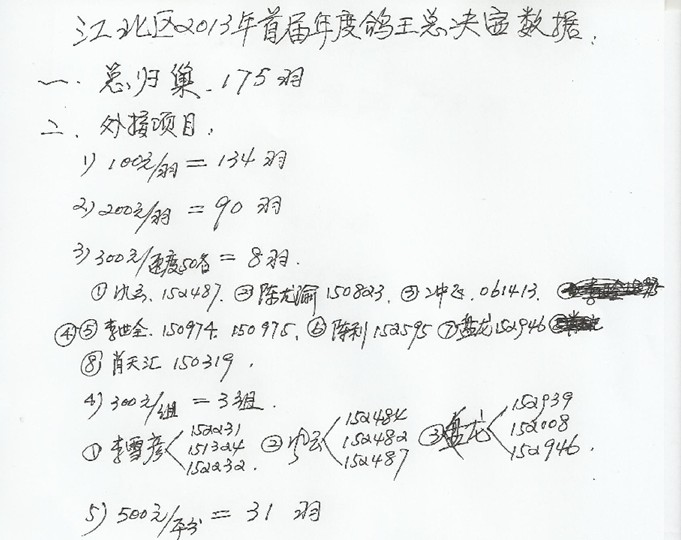 江北区2013年首届年度鸽王总决赛数据:
一. 总归巢. 175羽
二. 外接项目:
1) 100元/羽 = 134羽
2) 200元/羽 = 90羽
3) 300元/速度50名 = 8羽.
① 152487. ② 陈龙渝 150823. ③ 061413.
④⑤ 李世全. 150974. 150975. ⑥ 陈利 152595 ⑦ 盘龙 152946
⑧ 肖天汇 150319.
4) 300元/组 = 3组.
① 李雪彦 152231 151324 152232. ② 152484 152482 152487 ③ 盘龙 152939 152008 152946.
5) 500元/ = 31羽